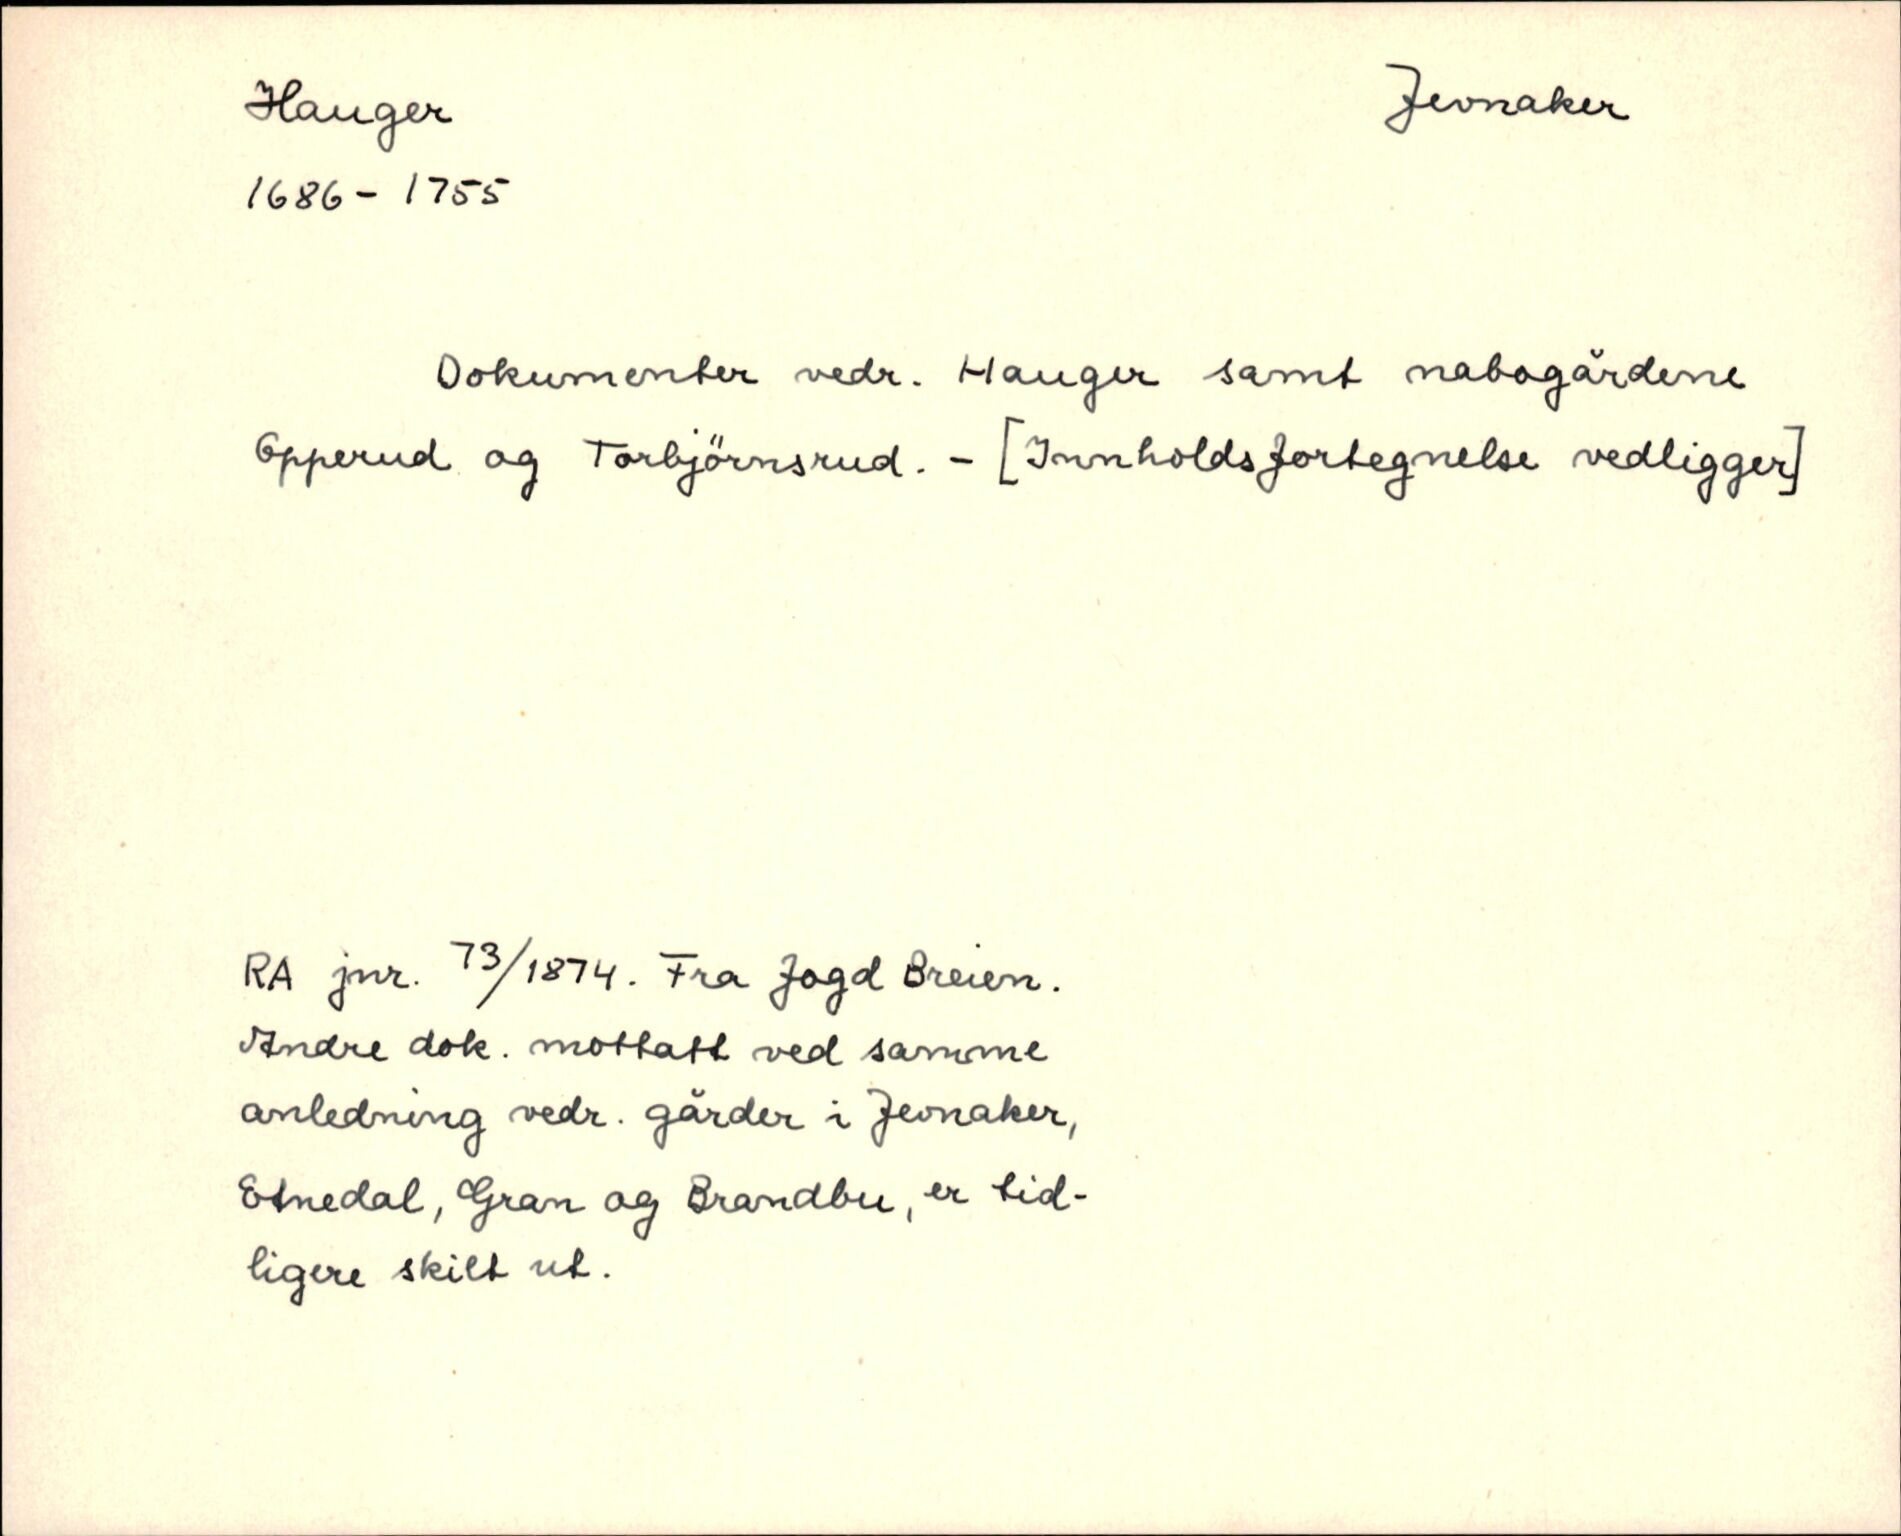 Hauger
Jevnaker
1686 - 1755
Dokumenter vedr. Hauger samt nabogårdene
Opperud og Torbjörnsrud. - [Innholdsfortegnelse vedligger]
RA jnr. 73/1874. Fra fogd Breien.
Andre dok. mottatt ved samme
anledning vedr. gårder i Jevnaker,
Etnedal, Gran og Brandbu, er tid-
ligere skilt ut.